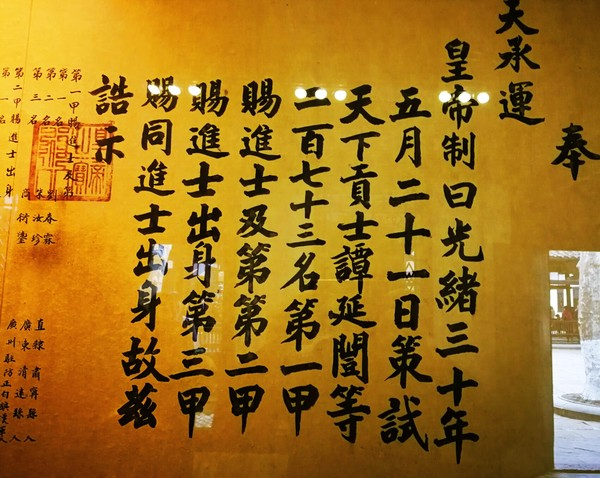 奉
天承運
皇帝制曰光緒三十年
五月二十一日策試
天下貢士譚延闓等
二百七十三名第一甲
賜進士及第第二甲
賜進士出身第三甲
賜同進士出身故茲
誥示
第一甲賜進士及第
第一名 劉春霖 直隸肅寧縣人
第二名 朱汝珍 廣東清遠縣人
第三名 商衍鎏 廣州駐防正白旗漢軍人
第二甲賜進士出身
第一名